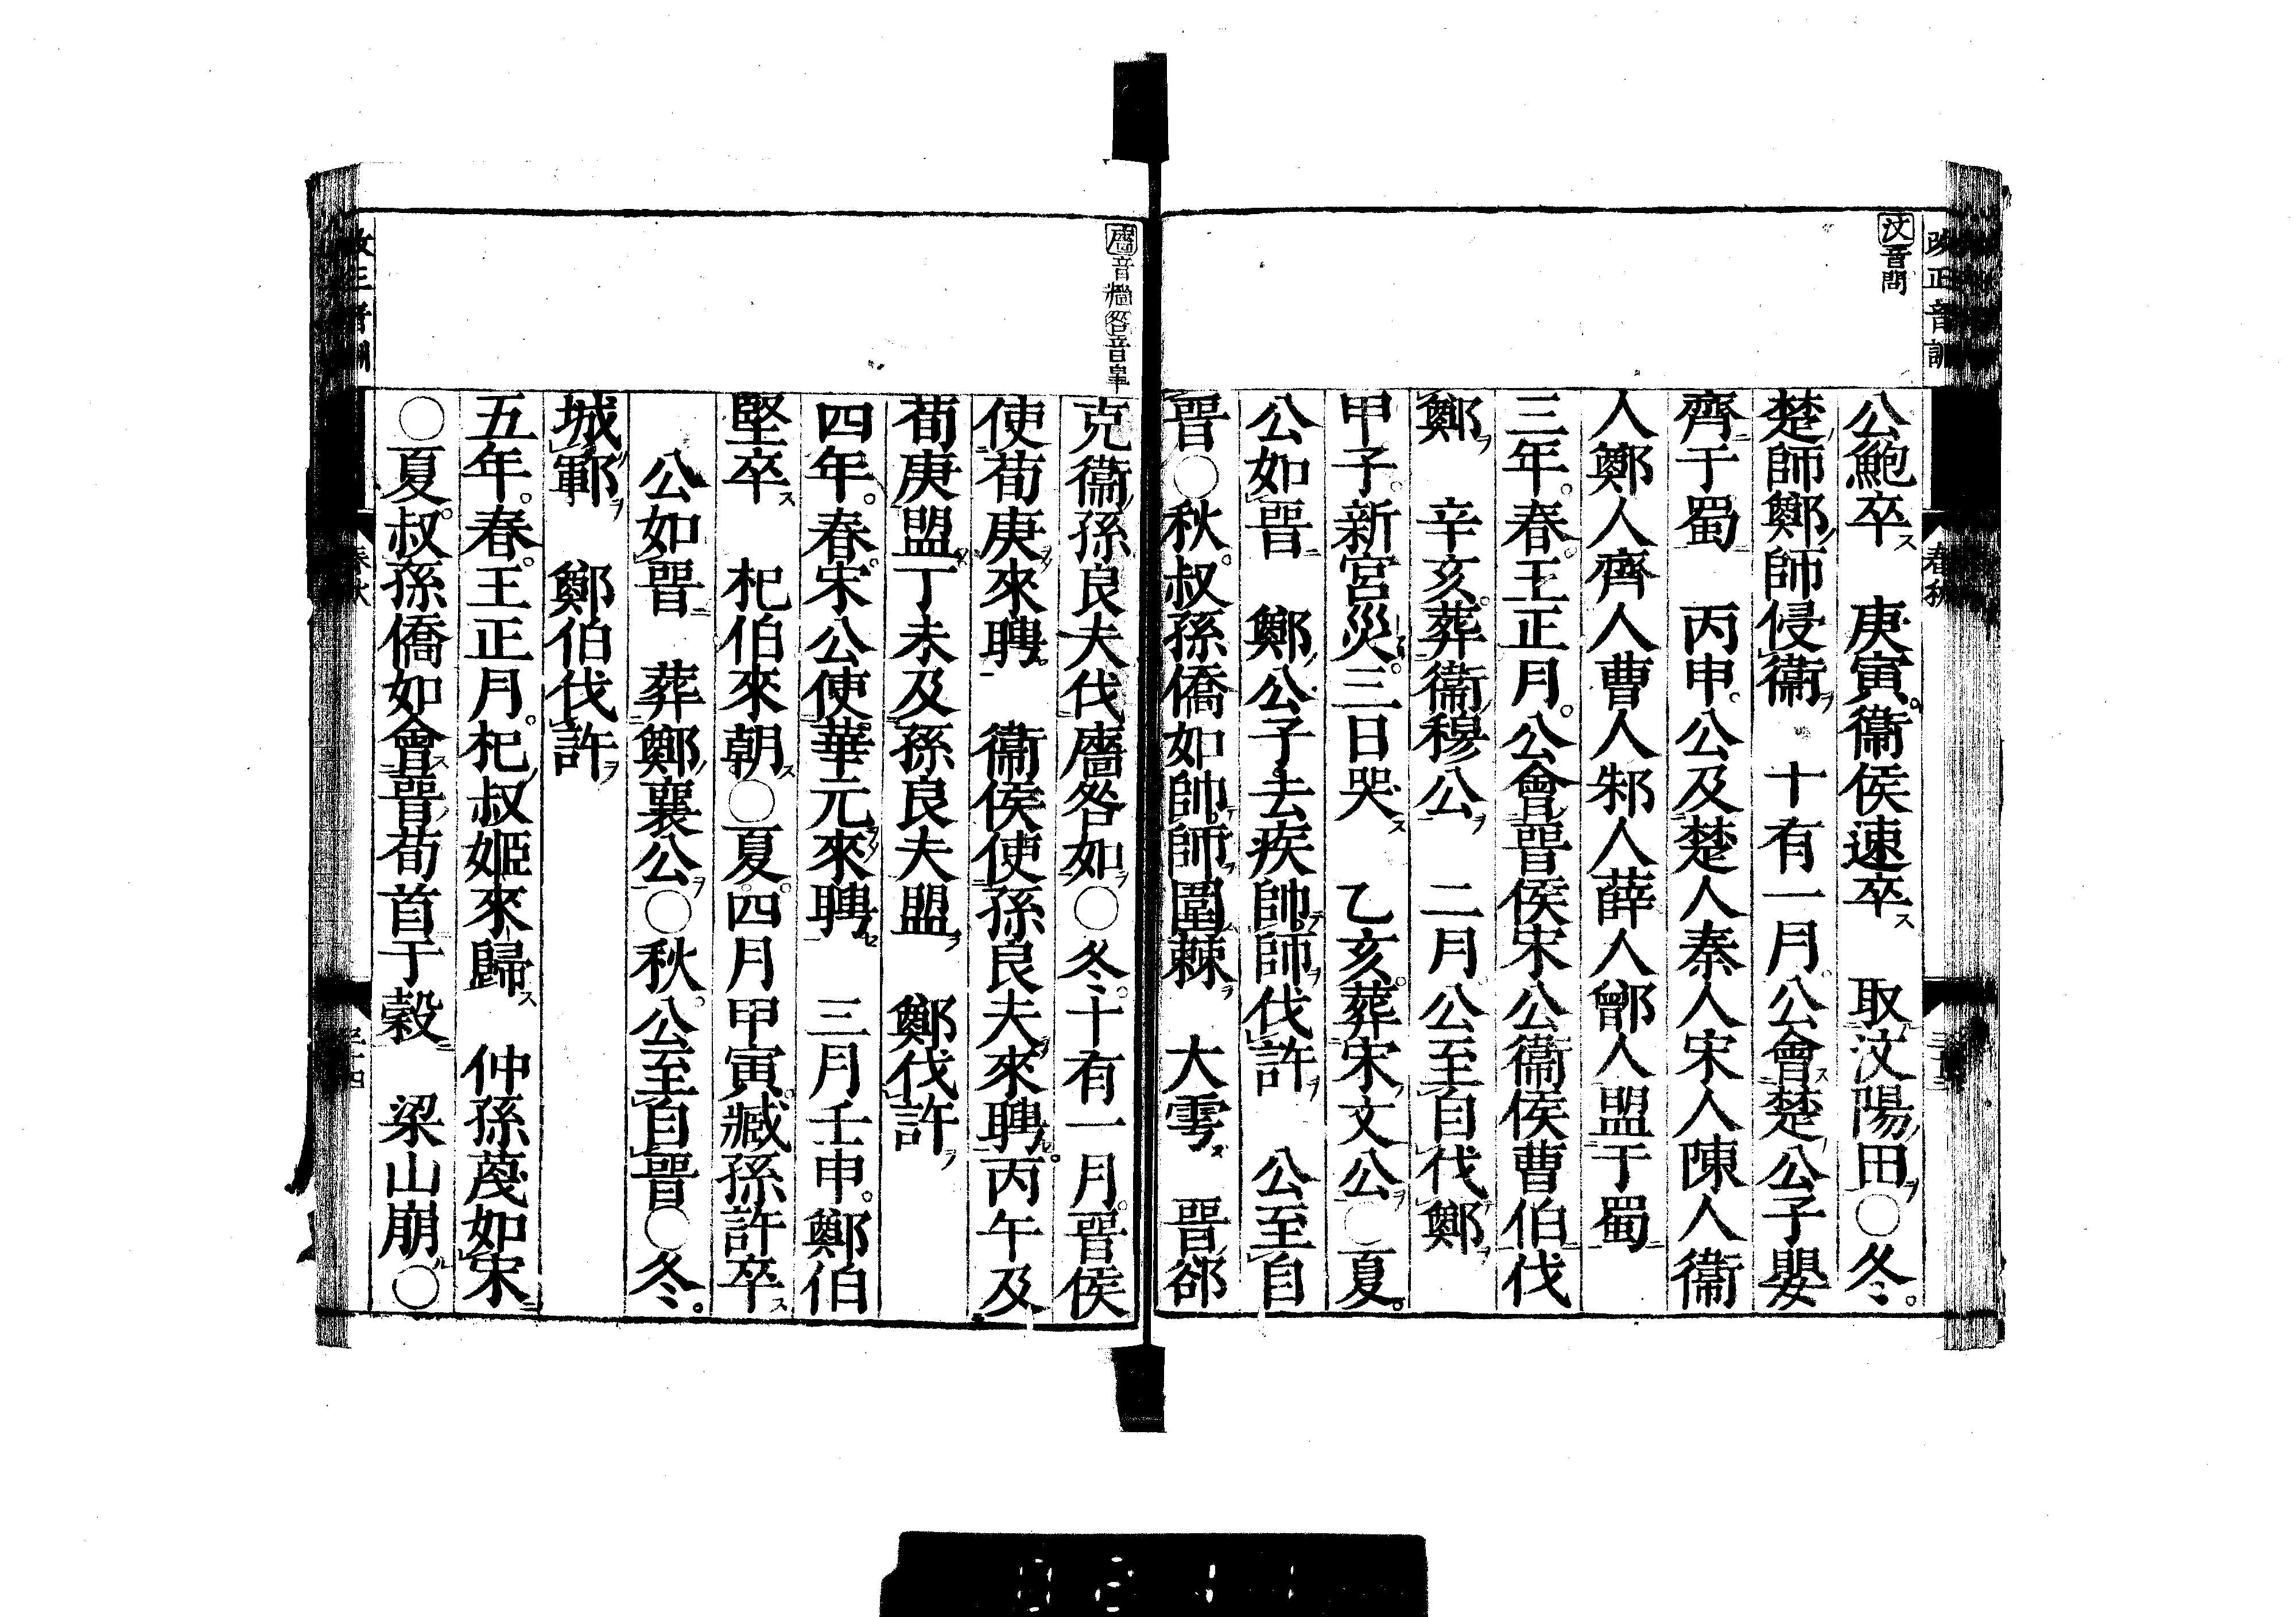 改正音訓
春秋
汶音問
公鮑卒ス　庚寅。衞侯速卒ス　取汶陽ノ田ヲ○冬。
楚ノ師鄭ノ師侵衞ヲ　十有一月。公會ス楚ノ公子嬰
齊ニ于蜀ニ　丙申。公及楚人秦人宋人陳人衞
人鄭人齊人曹人邾人薛人鄫人盟于蜀ニ
三年。春。王正月。公會晉侯宋公衞侯曹伯伐
鄭ヲ　辛亥。葬衞ノ穆公ヲ　二月。公至自伐鄭ヲ
甲子。新宮災。三日哭ス　乙亥。葬宋ノ文公ヲ○夏。
公如晉ニ　鄭ノ公子去疾帥師ヲ伐許ヲ　公至自
晉○秋。叔孫僑如帥師ヲ圍棘ヲ　大雩ス　晉ノ郤
廧音牆咎音皐
克衞ノ孫良夫伐廧咎如ヲ○冬。十有一月。晉侯
使荀庚來聘　衞侯使孫良夫來聘。丙午及
荀庚盟丁未及孫良夫盟ヲ　鄭伐許ヲ
四年。春。宋公使華元來聘　三月壬申。鄭伯
堅卒ス　杞伯來朝ス○夏。四月甲寅。臧孫許卒ス
公如晉ニ　葬鄭ノ襄公ヲ○秋。公至自晉○冬。
城鄆ヲ　鄭伯伐許ヲ
五年。春。王正月。杞ノ叔姬來歸ス　仲孫蔑如宋ニ
○夏。叔孫僑如會ス晉ノ荀首于穀ニ　梁山崩ル○
春秋